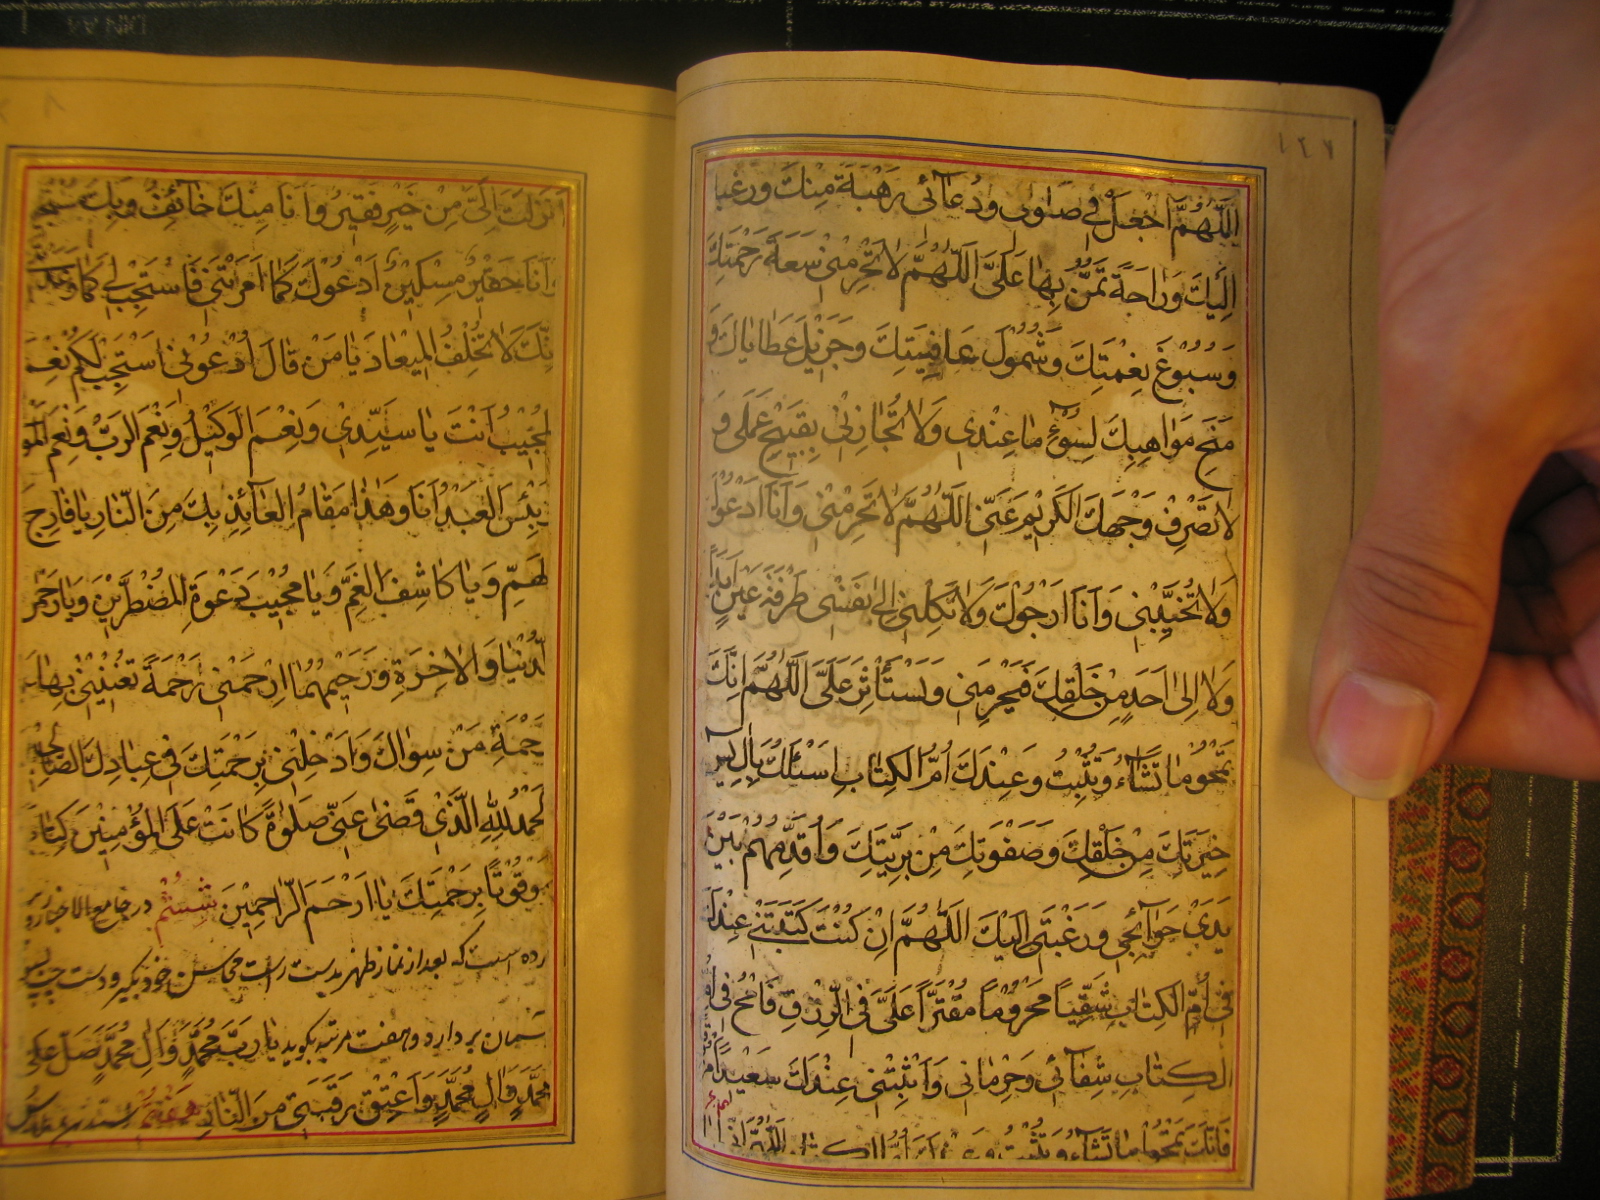 ١٤٧
اللّٰهُمَّ اجْعَلْ في صَلوٰتى وَدُعآئى رَهْبَةً مِنْكَ وَرَغْبَةً
اِلَيْكَ وَرٰاحَةً تَمُنُّ بِهٰا عَلَىَّ اَللّٰهُمَّ لاٰ تَحْرِمْنى سَعَةَ رَحْمَتِكَ
وَسُبُوْغَ نِعْمَتِكَ وَشُمُولَ عافِيَتِكَ وَجَزيْلَ عَطاياكَ وَ
مِنَحَ مَوٰاهِبِكَ لِسُوْءِ مٰا عِنْدى وَلاٰ تُجازِنْى بِقَبيْحِ عَمَلى وَ
لاٰ تَصْرِفْ وَجْهَكَ الْكَريْمَ عَنّى اَللّٰهُمَّ لاٰ تَحْرِمْنى وَاَنَا اَدْعُوْكَ
وَلاٰ تُخَيِّبْنى وَاَنَا اَرْجُوْكَ وَلاٰ تَكِلْنى اِلىٰ نَفْسى طَرْفَةَ عَيْنٍ اَبَداً
وَلاٰ اِلىٰ اَحَدٍ مِنْ خَلْقِكَ فَيَحْرِمَنى وَيَسْتَأْثِرَ عَلَىَّ اَللّٰهُمَّ اِنَّكَ
تَمْحُوْ مٰا تَشٰاءُ وَتُثْبِتُ وَعِنْدَكَ اُمُّ الْكِتٰابِ اَسْئَلُكَ بِاٰلِ يٰس
خِيَرَتِكَ مِنْ خَلْقِكَ وَصَفْوَتِكَ مِنْ بَرِيَّتِكَ وَاُقَدِّمُهُمْ بَيْنَ
يَدَىْ حَوٰآئِجى وَرَغْبَتى اِلَيْكَ اَللّٰهُمَّ اِنْ كُنْتَ كَتَبْتَنى عِنْدَكَ
فى اُمِّ الْكِتٰابِ شَقِيّاً مَحْرُوْماً مُقْتَرّاً عَلَىَّ فِى الرِّزْقِ فَامْحُ فى اُمِّ
الْكِتٰابِ شَقٰآئى وَحِرْمٰانى وَاَثْبِتْنى عِنْدَكَ سَعيْداً
فَاِنَّكَ تَمْحُوْ مٰا تَشٰاءُ وَتُثْبِتُ
اَنْزَلْتَ اِلَىَّ مِنْ خَيْرٍ فَقيْرٌ وَاَنَا مِنْكَ خٰآئِفٌ وَبِكَ
وَاَنَا حَقيْرٌ مِسْكيْنٌ اَدْعُوْكَ كَمٰا اَمَرْتَنى فَاسْتَجِبْ لى كَمٰا وَعَدْتَنى
اِنَّكَ لاٰ تُخْلِفُ الْميْعٰادَ يٰا مَنْ قٰالَ اُدْعُوْنى اَسْتَجِبْ لَكُمْ نِعْمَ
الْمُجيْبُ اَنْتَ يٰا سَيِّدى وَنِعْمَ الْوَكيْلُ وَنِعْمَ الرَّبُّ وَنِعْمَ الْمَوْلىٰ
بِئْسَ الْعَبْدُ اَنَا وَهٰذٰا مَقٰامُ الْعٰآئِذِ بِكَ مِنَ النّٰارِ يٰا فٰارِجَ
الْهَمِّ وَيٰا كٰاشِفَ الْغَمِّ وَيٰا مُجيْبَ دَعْوَةِ الْمُضْطَرّيْنَ وَيٰا رَحْمٰنَ
الدُّنْيٰا وَالاٰخِرَةِ وَرَحيْمَهُمٰا اِرْحَمْنى رَحْمَةً تُغْنيْنى بِهٰا عَنْ
رَحْمَةِ مَنْ سِوٰاكَ وَاَدْخِلْنى بِرَحْمَتِكَ فى عِبٰادِكَ الصّٰالِحيْنَ
اَلْحَمْدُ لِلّٰهِ الَّذى قَضىٰ عَنّى صَلوٰةً كٰانَتْ عَلَى الْمُؤْمِنيْنَ كِتٰاباً
مَوْقُوْتاً بِرَحْمَتِكَ يٰا اَرْحَمَ الرّٰاحِميْنَ شِشُم در جامع الاخبار
است كه بعد از نماز ظهر بدست راست محاسن خود بگير و دست چپ بسوى
آسمان بردارد و هفت مرتبه بگويد يٰا رَبَّ مُحَمَّدٍ وَاٰلِ مُحَمَّدٍ صَلِّ عَلىٰ
مُحَمَّدٍ وَاٰلِ مُحَمَّدٍ وَاَعْتِقْ رَقَبَتى مِنَ النّٰارِ هفتم